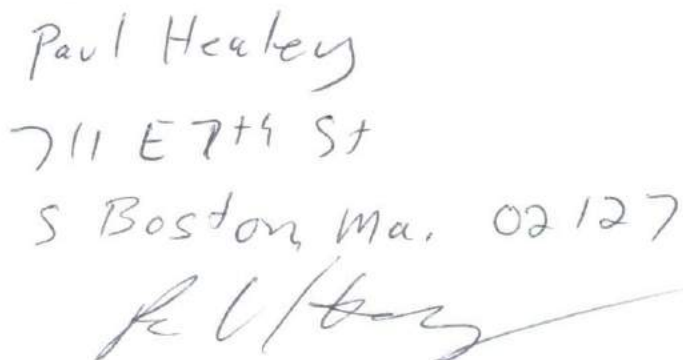 Paul Healey
711 E 7th St
S Boston, Ma. 02127